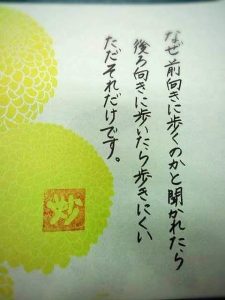 なぜ前向きに歩くのかと聞かれたら
後ろ向きに歩いたら歩きにくい
ただそれだけです。
妙